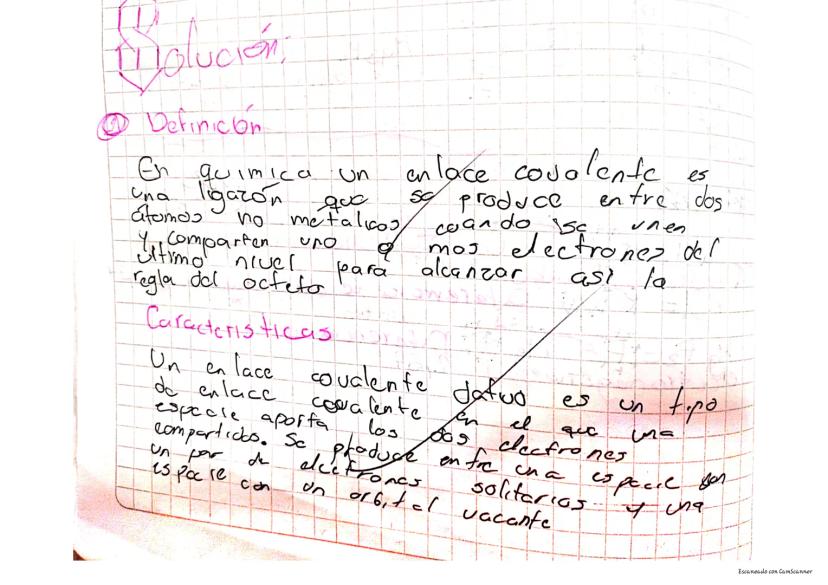 Solución:
① Definición
En química un enlace covalente es
una ligazón que se produce entre dos
átomos no metálicos cuando se unen
y comparten uno o mas electrones del
último nivel para alcanzar así la
regla del octeto
Caracteristicas
Un enlace covalente dativo es un tipo
de enlace covalente en el que una
especie aporta los dos electrones
compartidos. Se produce entre una especie con
un par de electrones solitarios y una
especie con un orbital vacante
Escaneado con CamScanner